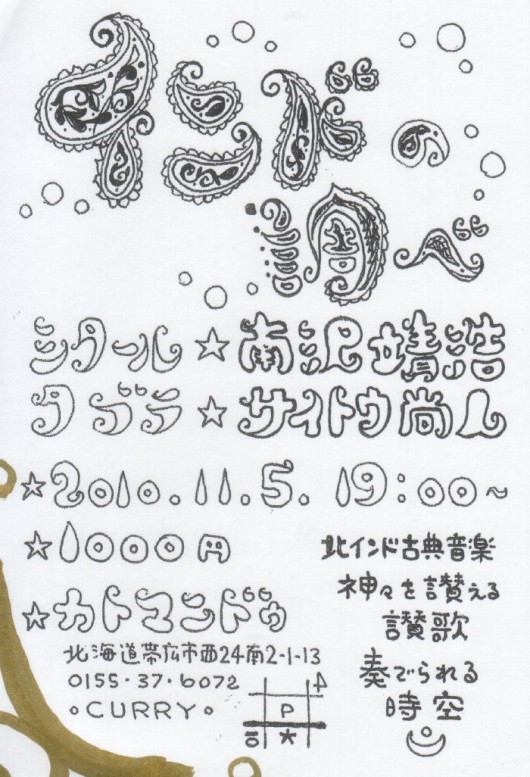 インドの
調べ
シタール☆南沢靖浩
タブラ☆サイトウ尚人
☆2010.11.5. 19:00~
☆1000円
☆カトマンドゥ
北海道帯広市西24南2-1-13
0155・37・6072
°CURRY°
P
北インド古典音楽
神々を讃える
讃歌
奏でられる
時空